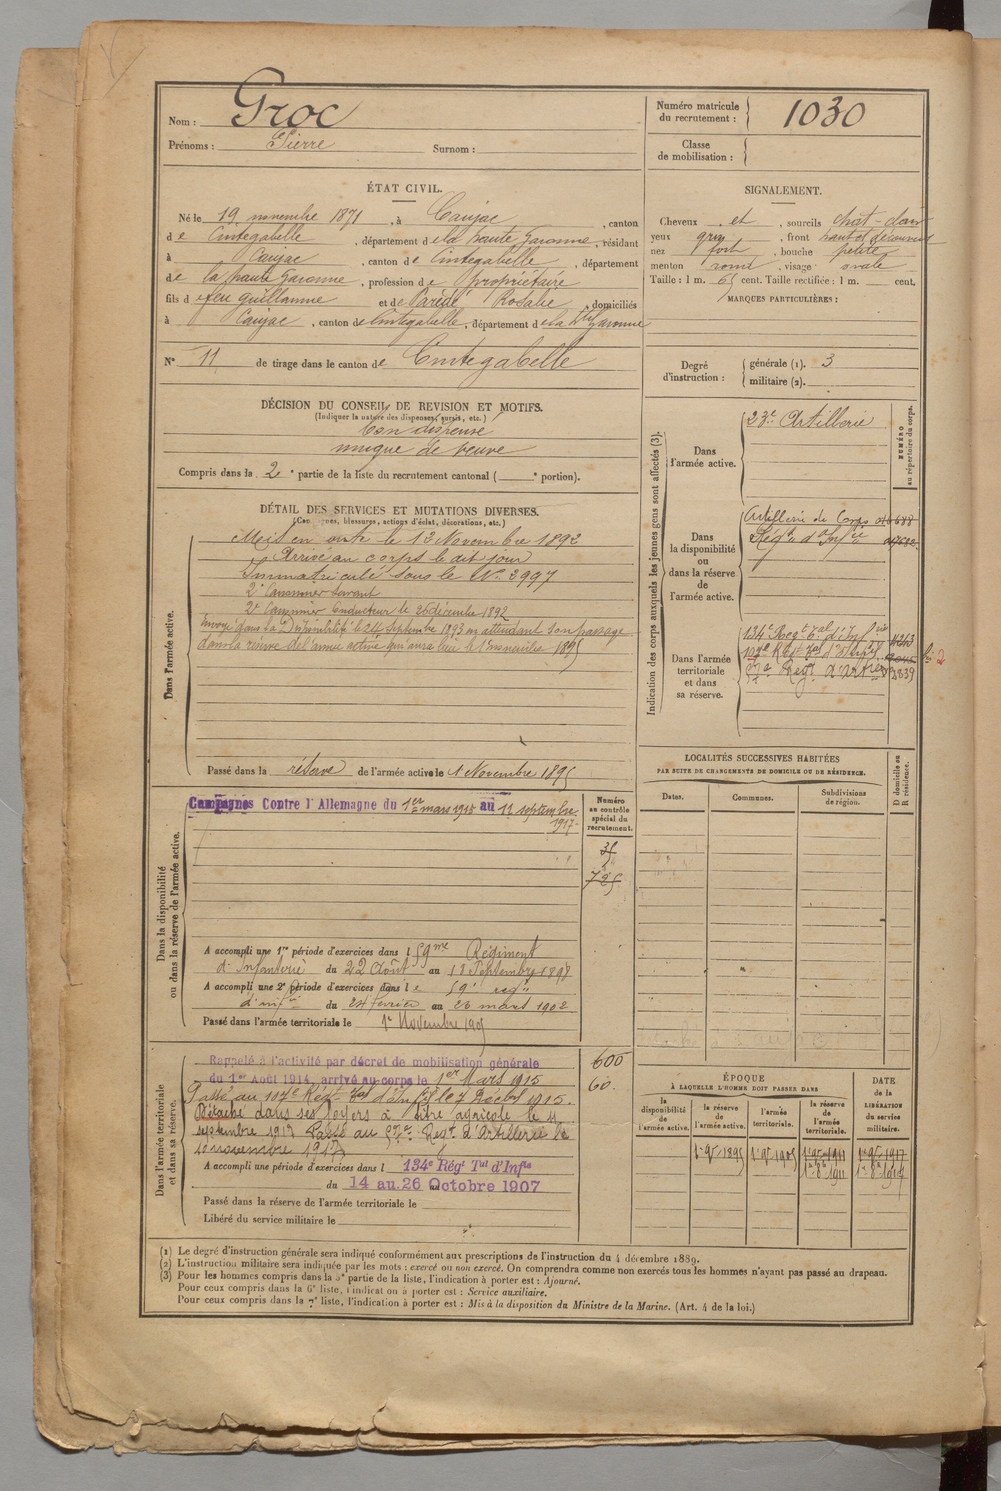 Nom : Groc
Prénoms : Pierre Surnom :
Numéro matricule du recrutement : 1030
Classe de mobilisation :
ÉTAT CIVIL.
Né le 19 novembre 1871, à Caujac, canton
de Cintegabelle, département de la haute Garonne, résidant
à Caujac, canton de Cintegabelle, département
de la haute Garonne, profession de propriétaire
fils de feu guillaume et de Rosalie, domiciliés
à Caujac, canton de Cintegabelle, département de la Hte Garonne
N° 11 de tirage dans le canton de Cintegabelle
SIGNALEMENT.
Cheveux et sourcils chat-clair
yeux gris, front haut et découvert
nez fort, bouche petite
menton rond, visage ovale
Taille : 1 m. 65 cent. Taille rectifiée : 1 m. cent.
MARQUES PARTICULIÈRES :
Degré d'instruction : générale (1). 3
militaire (2).
DÉCISION DU CONSEIL DE REVISION ET MOTIFS.
(Indiquer la nature des dispenses, sursis, etc.)
Bon dispensé
unique de veuve
Compris dans la 2e partie de la liste du recrutement cantonal ( e portion).
DÉTAIL DES SERVICES ET MUTATIONS DIVERSES.
(Campagnes, blessures, actions d'éclat, décorations, etc.)
Dans l'armée active.
Mis en route le 13 Novembre 1892
Arrivé au corps le dit jour
Immatriculé sous le N° 2997
2e Canonnier servant
2e Canonnier Conducteur le 26 décembre 1892
Envoyé dans la Disponibilité le 24 septembre 1893 en attendant son passage
dans la réserve de l'armée active qui aura lieu le 1er novembre 1895
Passé dans la réserve de l'armée active le 1 Novembre 1895
Indication des corps auxquels les jeunes gens sont affectés (3).
NUMÉRO au répertoire du corps.
Dans l'armée active.
23e Artillerie
Dans la disponibilité ou dans la réserve de l'armée active.
Artillerie de Corps
Régt d'Infie
Dans l'armée territoriale et dans sa réserve.
134e Régt tal d'Infie
107e Régt tal d'Inf
57e Regt d'Art
LOCALITÉS SUCCESSIVES HABITÉES
PAR SUITE DE CHANGEMENTS DE DOMICILE OU DE RÉSIDENCE.
Dates. Communes. Subdivisions de région. D domicile ou R résidence.
Dans la disponibilité ou dans la réserve de l'armée active.
Campagnes Contre l'Allemagne du 1er mars 1915 au 11 septembre
1917
Numéro au contrôle spécial du recrutement.
35
725
A accompli une 1re période d'exercices dans l 59me Régiment
d'Infanterie du 22 Août au 18 Septembre 1898
A accompli une 2e période d'exercices dans le 59e regt
d'infie du 24 février au 23 mars 1902
Passé dans l'armée territoriale le 1er Novembre 1905
Dans l'armée territoriale et dans sa réserve.
Rappelé à l'activité par décret de mobilisation générale
du 1er Août 1914, arrivé au corps le 1er Mars 1915
Passé au 107e Régt Tal d'Infie le 7 Décbre 1915.
Détaché dans ses foyers à titre agricole le 11
septembre 1917 Passé au 57e Regt d'Artillerie le
10 novembre 1917
600
60.
A accompli une période d'exercices dans l 134e Régt Tal d'Infie
du 14 au 26 Octobre 1907
Passé dans la réserve de l'armée territoriale le
Libéré du service militaire le
ÉPOQUE À LAQUELLE L'HOMME DOIT PASSER DANS
la disponibilité de l'armée active. la réserve de l'armée active. l'armée territoriale. la réserve de l'armée territoriale.
DATE de la LIBÉRATION du service militaire.
1er 9bre 1895 1er 9bre 1905 1er 9bre 1911 1er 9bre 1917
(1) Le degré d'instruction générale sera indiqué conformément aux prescriptions de l'instruction du 4 décembre 1889.
(2) L'instruction militaire sera indiquée par les mots : exercé ou non exercé. On comprendra comme non exercés tous les hommes n'ayant pas passé au drapeau.
(3) Pour les hommes compris dans la 5e partie de la liste, l'indication à porter est : Ajourné.
Pour ceux compris dans la 6e liste, l'indication à porter est : Service auxiliaire.
Pour ceux compris dans la 7e liste, l'indication à porter est : Mis à la disposition du Ministre de la Marine. (Art. 4 de la loi.)